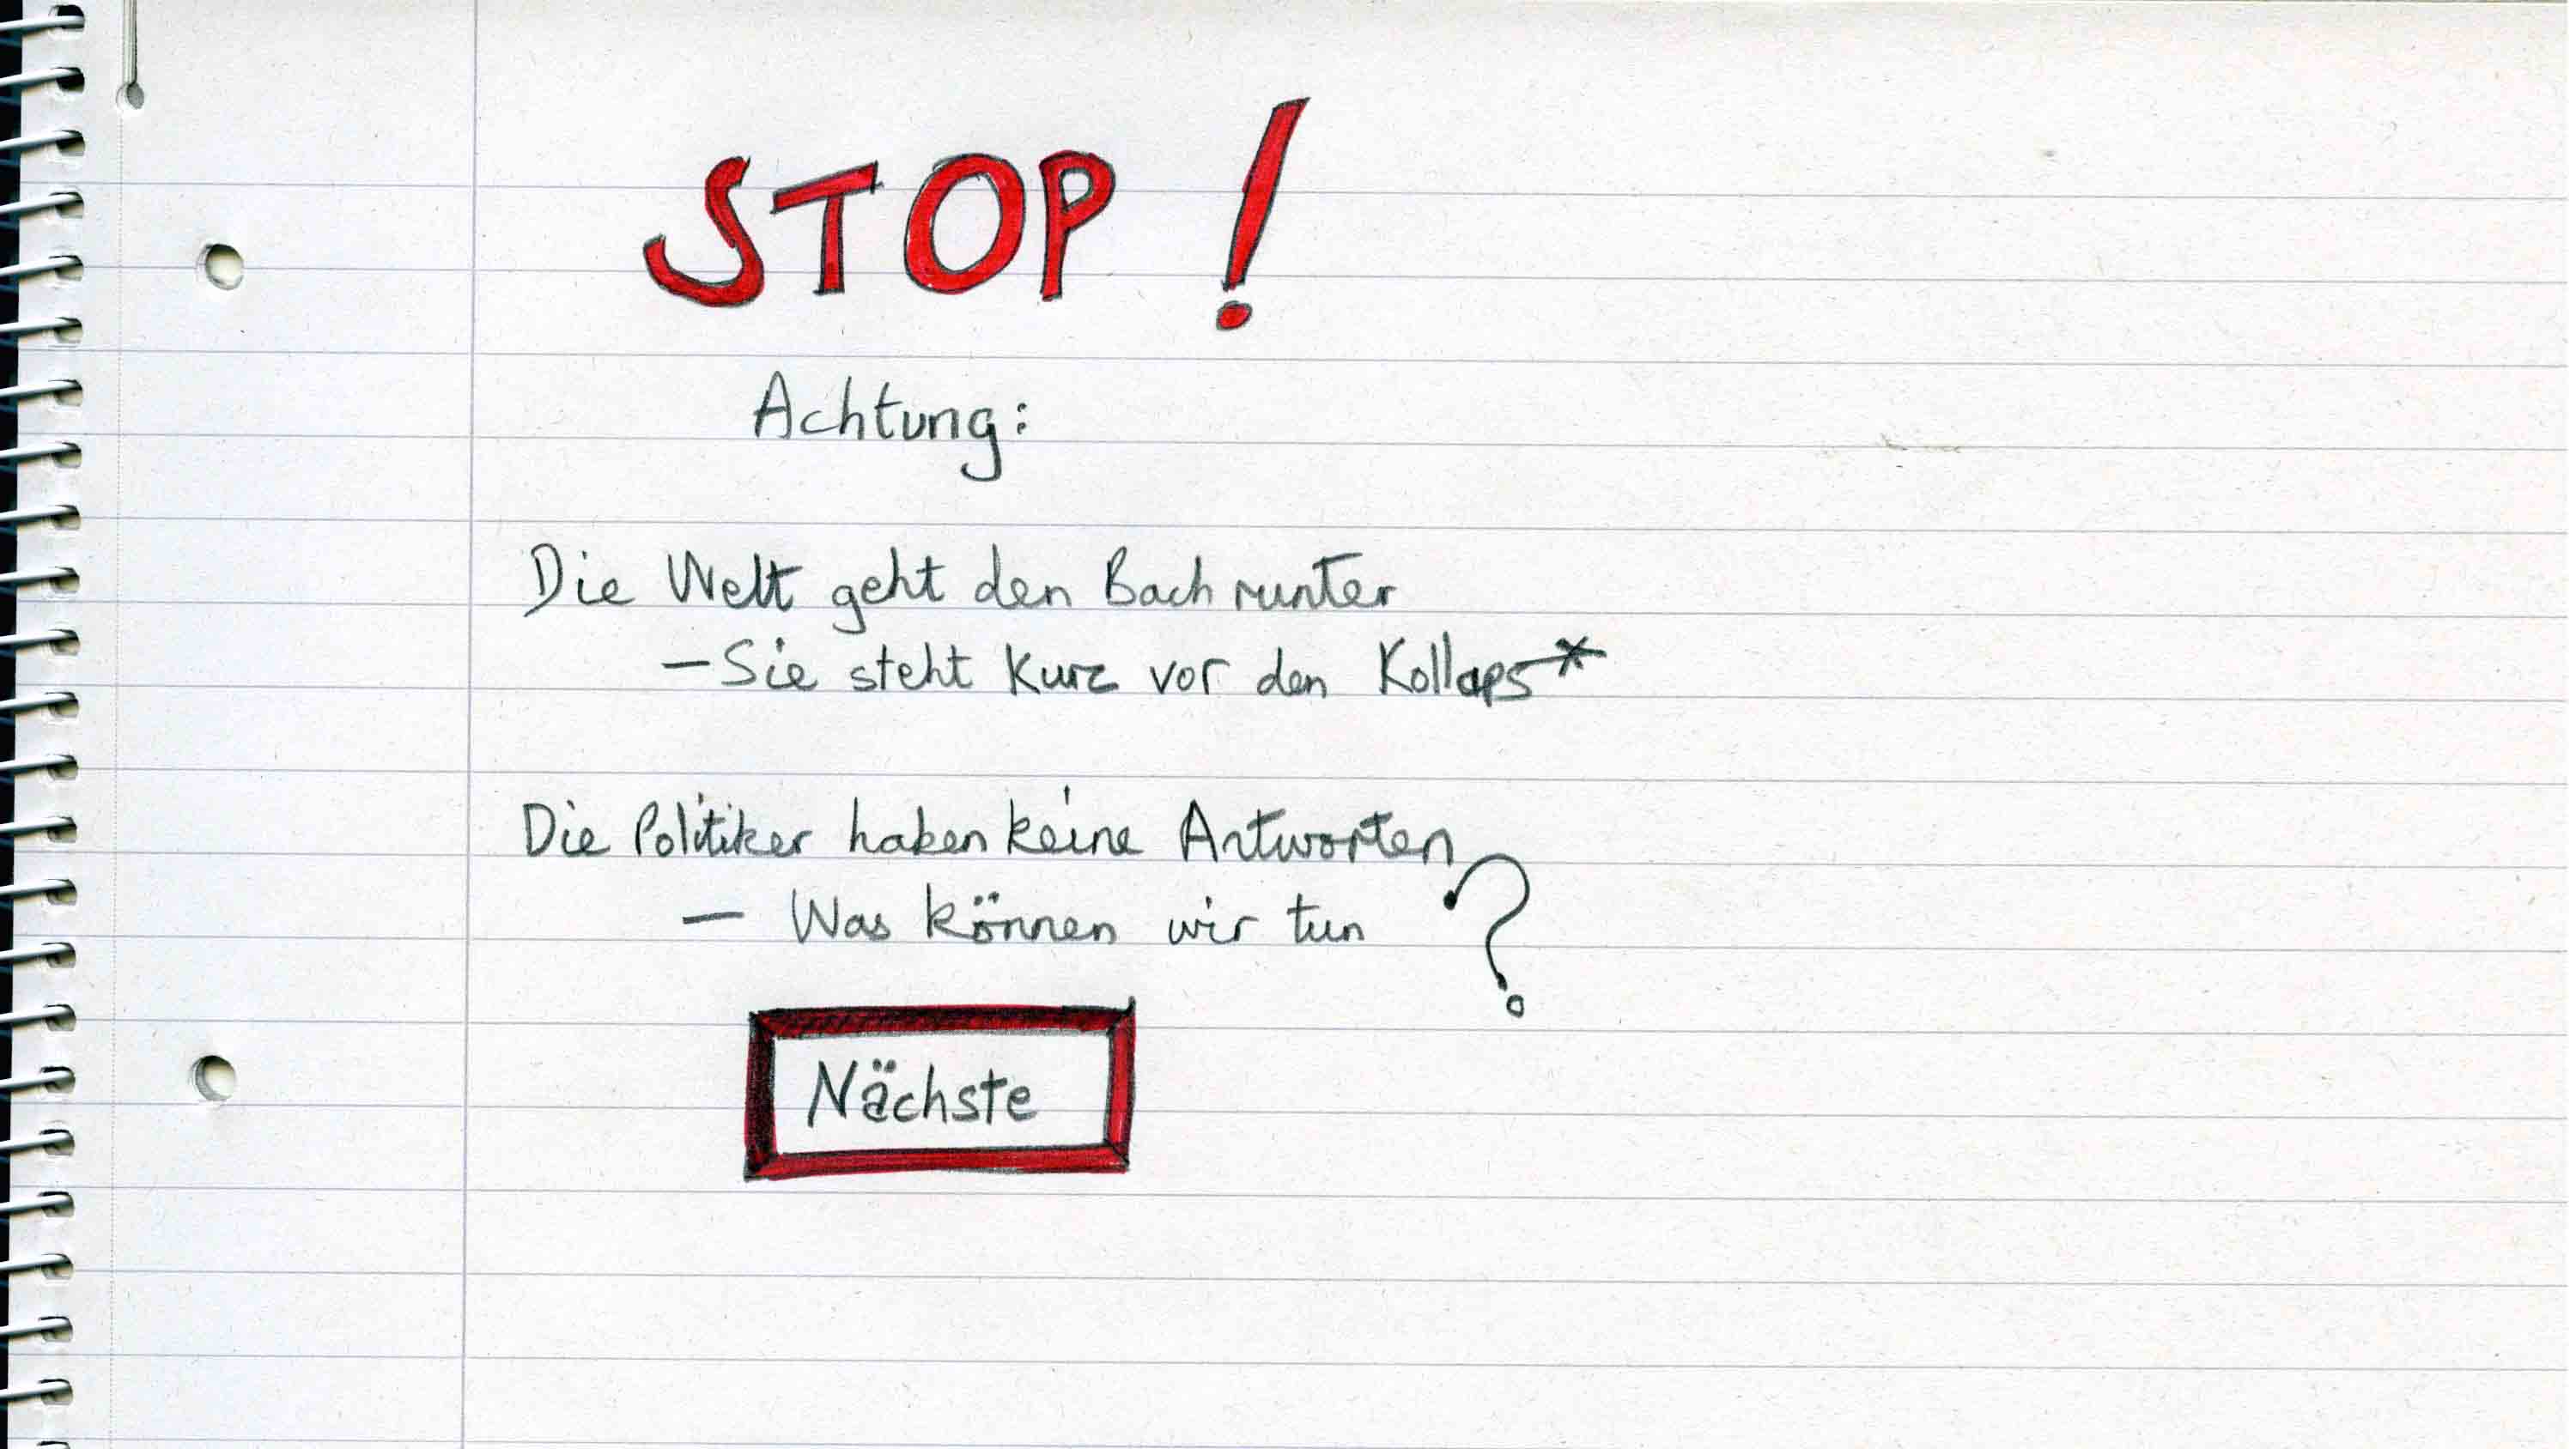 STOP!
Achtung:
Die Welt geht den Bach runter
– Sie steht kurz vor den Kollaps*
Die Politiker haben keine Antworten
– Was können wir tun?
Nächste